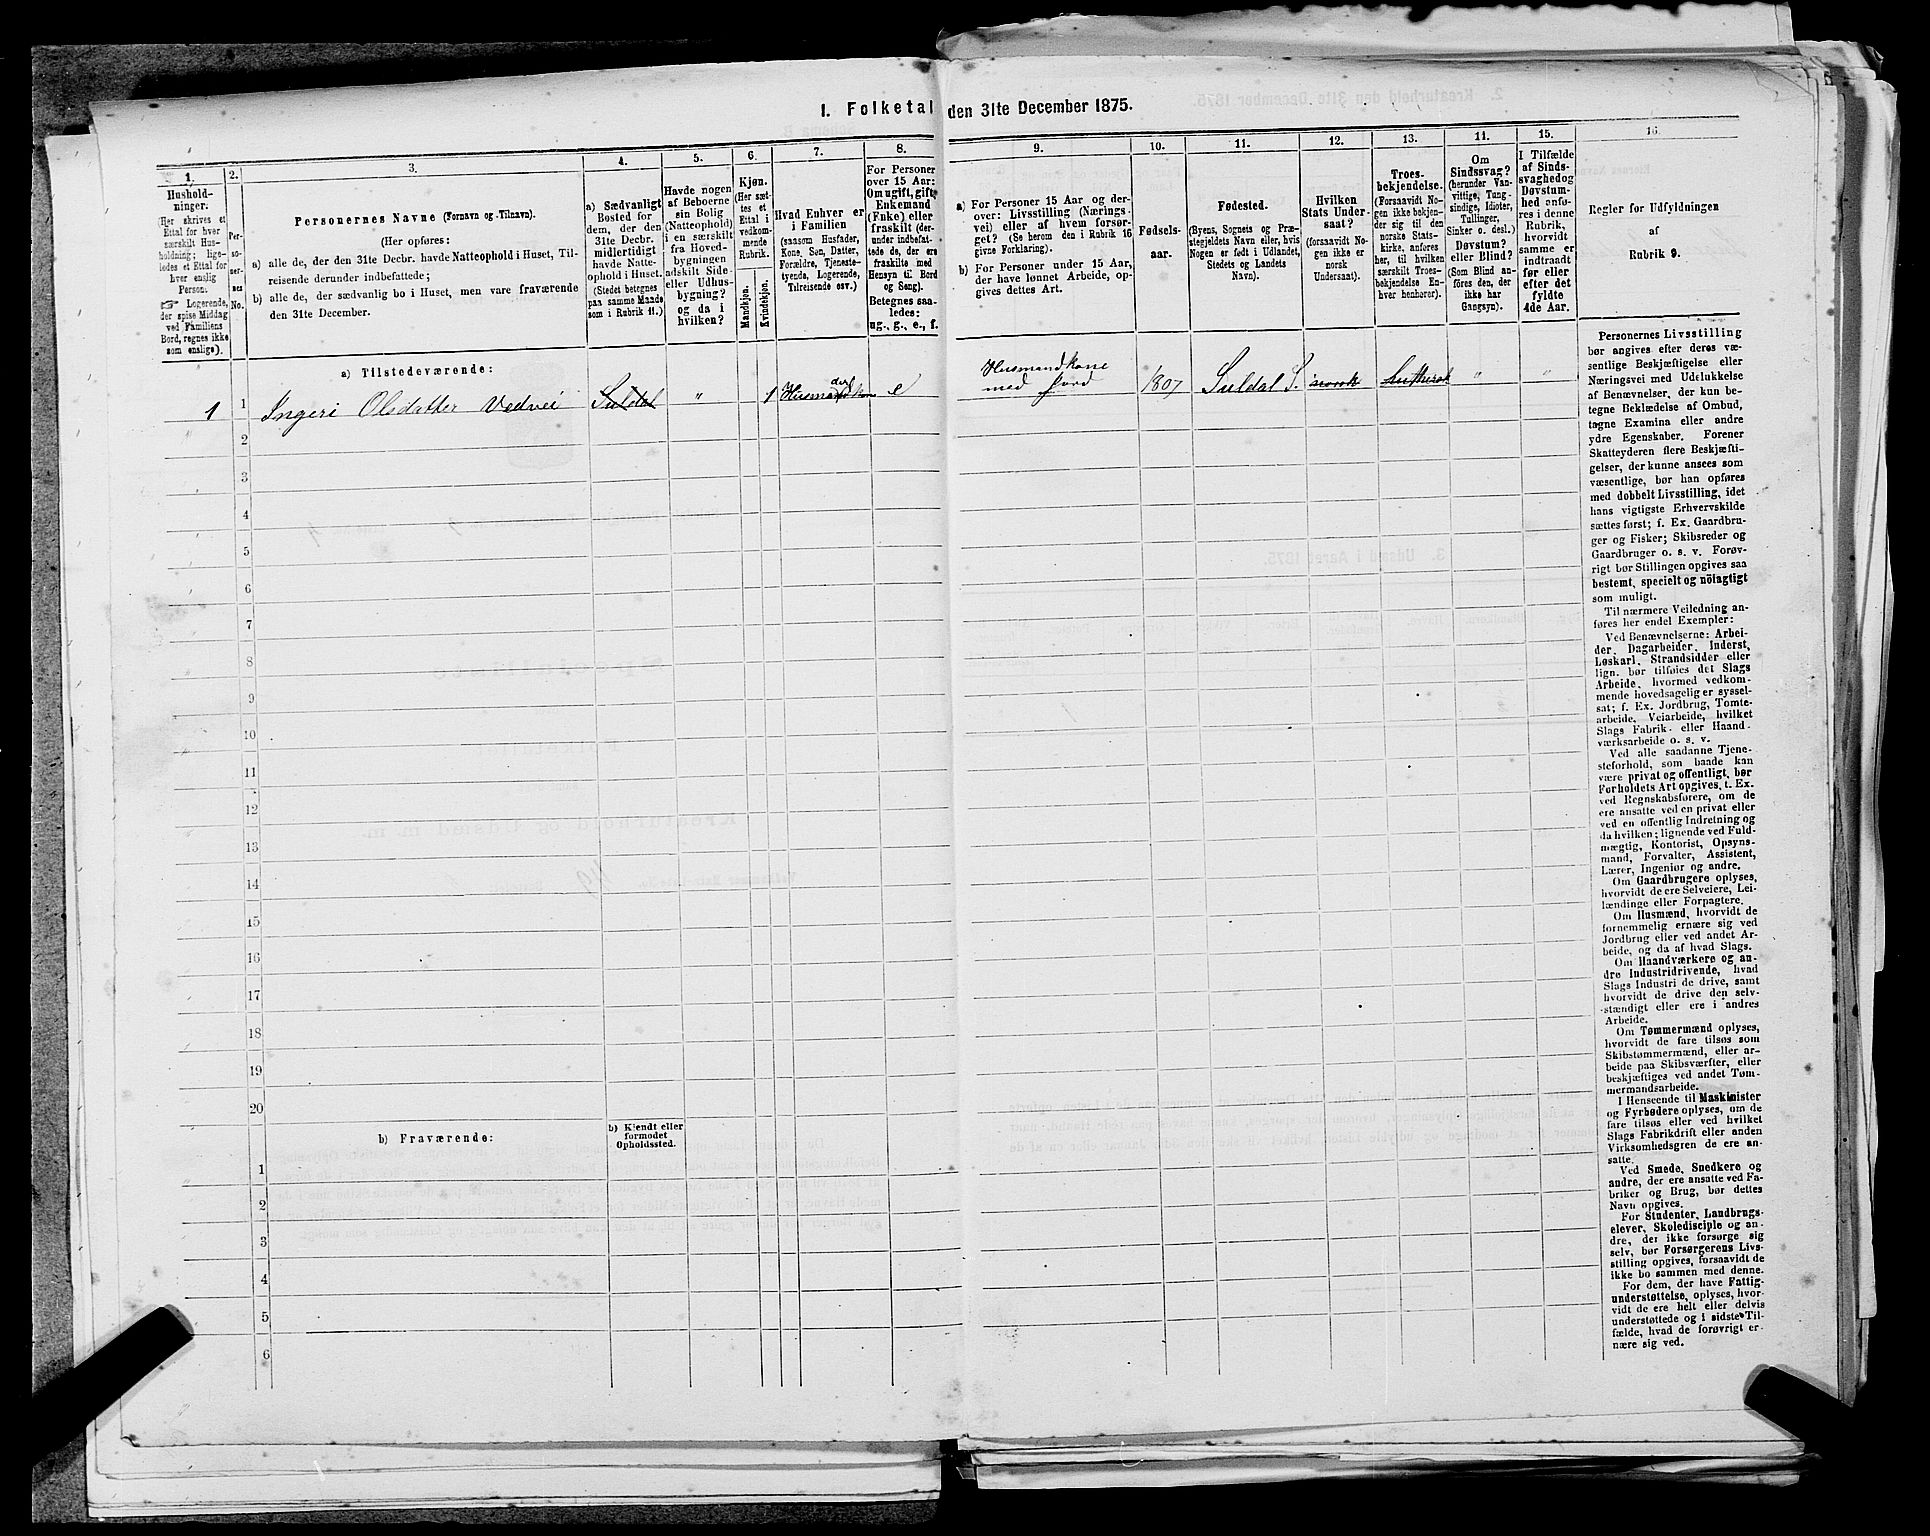 1. Folketal den 31te December 1875.
1.
Hushold-
ninger.
(Her skrives et
Ettal for hver
særskilt Hus-
holdning; lige-
ledes et Ettal for
hver enslig
Person.
☞ Logerende,
der spise Middag
ved Familiens
Bord, regnes ikke
som enslige).
2.
Per-
so-
ner-
nes
No.
3.
Personernes Navne (Fornavn og Tilnavn).
(Her opføres:
a) alle de, der den 31te Decbr. havde Natteophold i Huset, Til-
reisende derunder indbefattede;
b) alle de, der sædvanlig bo i Huset, men vare fraværende
den 31te December.
4.
a) Sædvanligt
Bosted for
dem, der den
31te Decbr.
midlertidigt
havde Natte-
ophold i Huset.
(Stedet betegnes
paa samme Maade
som i Rubrik 11.)
5.
Havde nogen
af Beboerne
sin Bolig
(Natteophold)
i en særskilt
fra Hoved-
bygningen
adskilt Side-
eller Udhus-
bygning?
og da i
hvilken?
6.
Kjøn.
(Her sæt-
tes et
Ettal i
vedkom-
mende
Rubrik.
Mandkjøn.
Kvindekjøn.
7.
Hvad Enhver er
i Familien
(saasom Husfader,
Kone, Søn, Datter,
Forældre, Tjeneste-
tyende, Logerende,
Tilreisende osv.)
8.
For Personer
over 15 Aar:
Om ugift, gift,
Enkemand
(Enke) eller
fraskilt (der-
under indbefat-
tede de, der ere
fraskilte med
Hensyn til Bord
og Seng).
Betegnes saa-
ledes:
ug., g., e., f.
9.
a) For Personer 15 Aar og der-
over: Livsstilling (Nærings-
vei) eller af hvem forsør-
get? (Se herom den i Rubrik 16
givne Forklaring).
b) For Personer under 15 Aar,
der have lønnet Arbeide, op-
gives dettes Art.
10.
Fødsels-
aar.
11.
Fødested.
(Byens, Sogneis og Præ-
stegjeldets Navn eller, hvis
Nogen er født i Udlandet,
Stedets og Landets
Navn).
12.
Hvilken
Stats Under-
saat?
(forsaavidt No-
gen ikke er
norsk
Undersaat).
13.
Troes-
bekjendelse.
(Forsaavidt No-
gen ikke bekjen-
der sig til den
norske Stats-
kirke, anføres
her, til hvilken
særskilt Troes-
bekjendelse En-
hver henhører).
11.
Om
Sindssvag?
(herunder Van-
vittige, Tung-
sindige, Idioter,
Tullinger,
Sinker o. desl.)
Døvstum?
eller Blind?
(Som Blind an-
föres den, der
ikke har
Gangsyn).
15.
I Tilfælde
af Sinds-
svaghed og
Døvstum-
hed anfø-
res i denne
Rubrik,
hvorvidt
samme er
indtraadt
før eller
efter det
fyldte
4de Aar.
16.
Regler for Udfyldningen
af
Rubrik 9.
a) Tilstedeværende:
1 1 Ingeri Olsdatter Vedvei Suldal " 1 e Husmandkone med Jord 1807 Suldal S. norsk Luthersk " "
2
3
4
5
6
7
8
9
10
11
12
13
14
15
16
17
18
19
20
b) Fraværende:
b) Kjendt eller
formodet
Opholdssted.
1
2
3
4
5
6
Personernes Livsstilling
bør angives efter deres væ-
sentlige Beskjæftigelse eller
Næringsvei med Udelukkelse
af Benævnelser, der kun be-
tegne Beklædelse af Ombud,
tagne Examina eller andre
ydre Egenskaber. Forener
Skatteyderen flere Beskjæfti-
gelser, der kunne ansees som
væsentlige, bør han opføres
med dobbelt Livsstilling, idet
hans vigtigste Erhvervskilde
sættes først; f. Ex. Gaardbru-
ger og Fisker; Skibsreder og
Gaardbruger o. s. v. Forøv-
rigt bør Stillingen opgives saa
bestemt, specielt og nöiagtigt
som muligt.
Til nærmere Veiledning an-
føres her endel Exempler:
Ved Benævnelserne: Arbei-
der, Dagarbeider, Inderst,
Løskarl, Strandsidder eller
lign. bør tilføies det Slags
Arbeide, hvormed vedkom-
mende hovedsagelig er syssel-
sat; f. Ex. Jordbrug, Tomte-
arbeide, Veiarbeide, hvilket
Slags Fabrik- eller Haand-
værksarbeide o. s. v.
Ved alle saadanne Tjene-
steforhold, som baade kan
være privat og offentligt, bør
Forholdets Art opgives, t. Ex.
ved Regnskabsførere, om de
ere ansatte ved en privat eller
ved en offentlig Indretning og
da hvilken; lignende ved Fuld-
mægtig, Kontorist, Opsyns-
mand, Forvalter, Assistent,
Lærer, Ingeniør og andre.
Om Gaardbrugere oplyses,
hvorvidt de ere Selveiere, Lei-
lændinge eller Forpagtere.
Om Husmænd, hvorvidt de
fornemmelig ernære sig ved
Jordbrug eller ved andet Ar-
beide, og da af hvad Slags.
Om Haandværkere og an-
dre Industridrivende, hvad
Slags Industri de drive, samt
hvorvidt de drive den selv-
stændigt eller ere i andres
Arbeide.
Om Tømmermænd oplyses,
hvorvidt de fare tilsøs som
Skibstømmermænd, eller ar-
beide paa Skibsværfter, eller
beskjæftiges ved andet Tøm-
mermandsarbeide.
I Henseende til Maskinister
og Fyrbødere oplyses, om de
fare tilsøs eller ved hvilket
Slags Fabrikdrift eller anden
Virksomhedsgren de ere an-
satte.
Ved Smede, Snedkere og
andre, der ere ansatte ved Fa-
briker og Brug, bør dettes
Navn opgives.
For Studenter, Landbrugs-
elever, Skoledisciple og an-
dre, der ikke forsørge sig
selv, bør Forsørgerens Livs-
stilling opgives, forsaavidt de
ikke bo sammen med denne.
For dem, der have Fattig-
understøttelse, oplyses, hvor-
vidt de ere helt eller delvis
understøttede og i sidste Til-
fælde, hvad de forøvrigt er-
nære sig ved.